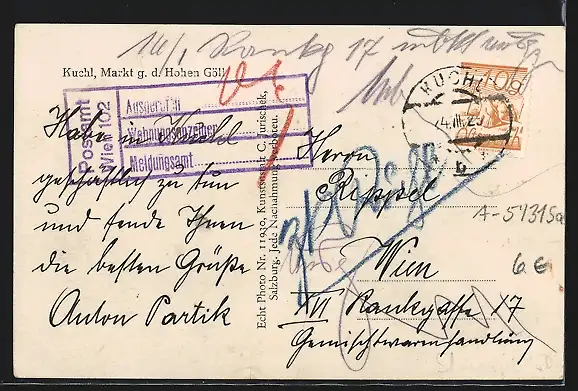 14/1 Rankg 17
Kuchl, Markt g. d. Hohen Göll
Postamt
Wien 102
Ausgerufen
Wohnungsanzeiger
Meldungsamt
KUCHL
b
Habe in Kuchl
geschäftlich zu tun
und sende Ihnen
die besten Grüße
Anton Partik
Echt Photo Nr. 11930, Kunstanstalt C. Jurischek,
Salzburg. Jede Nachahmung verboten.
Herrn
Reppel
Wien
XVI Rankgasse 17
Gemischtwarenhandlung
A-54315a
6 €